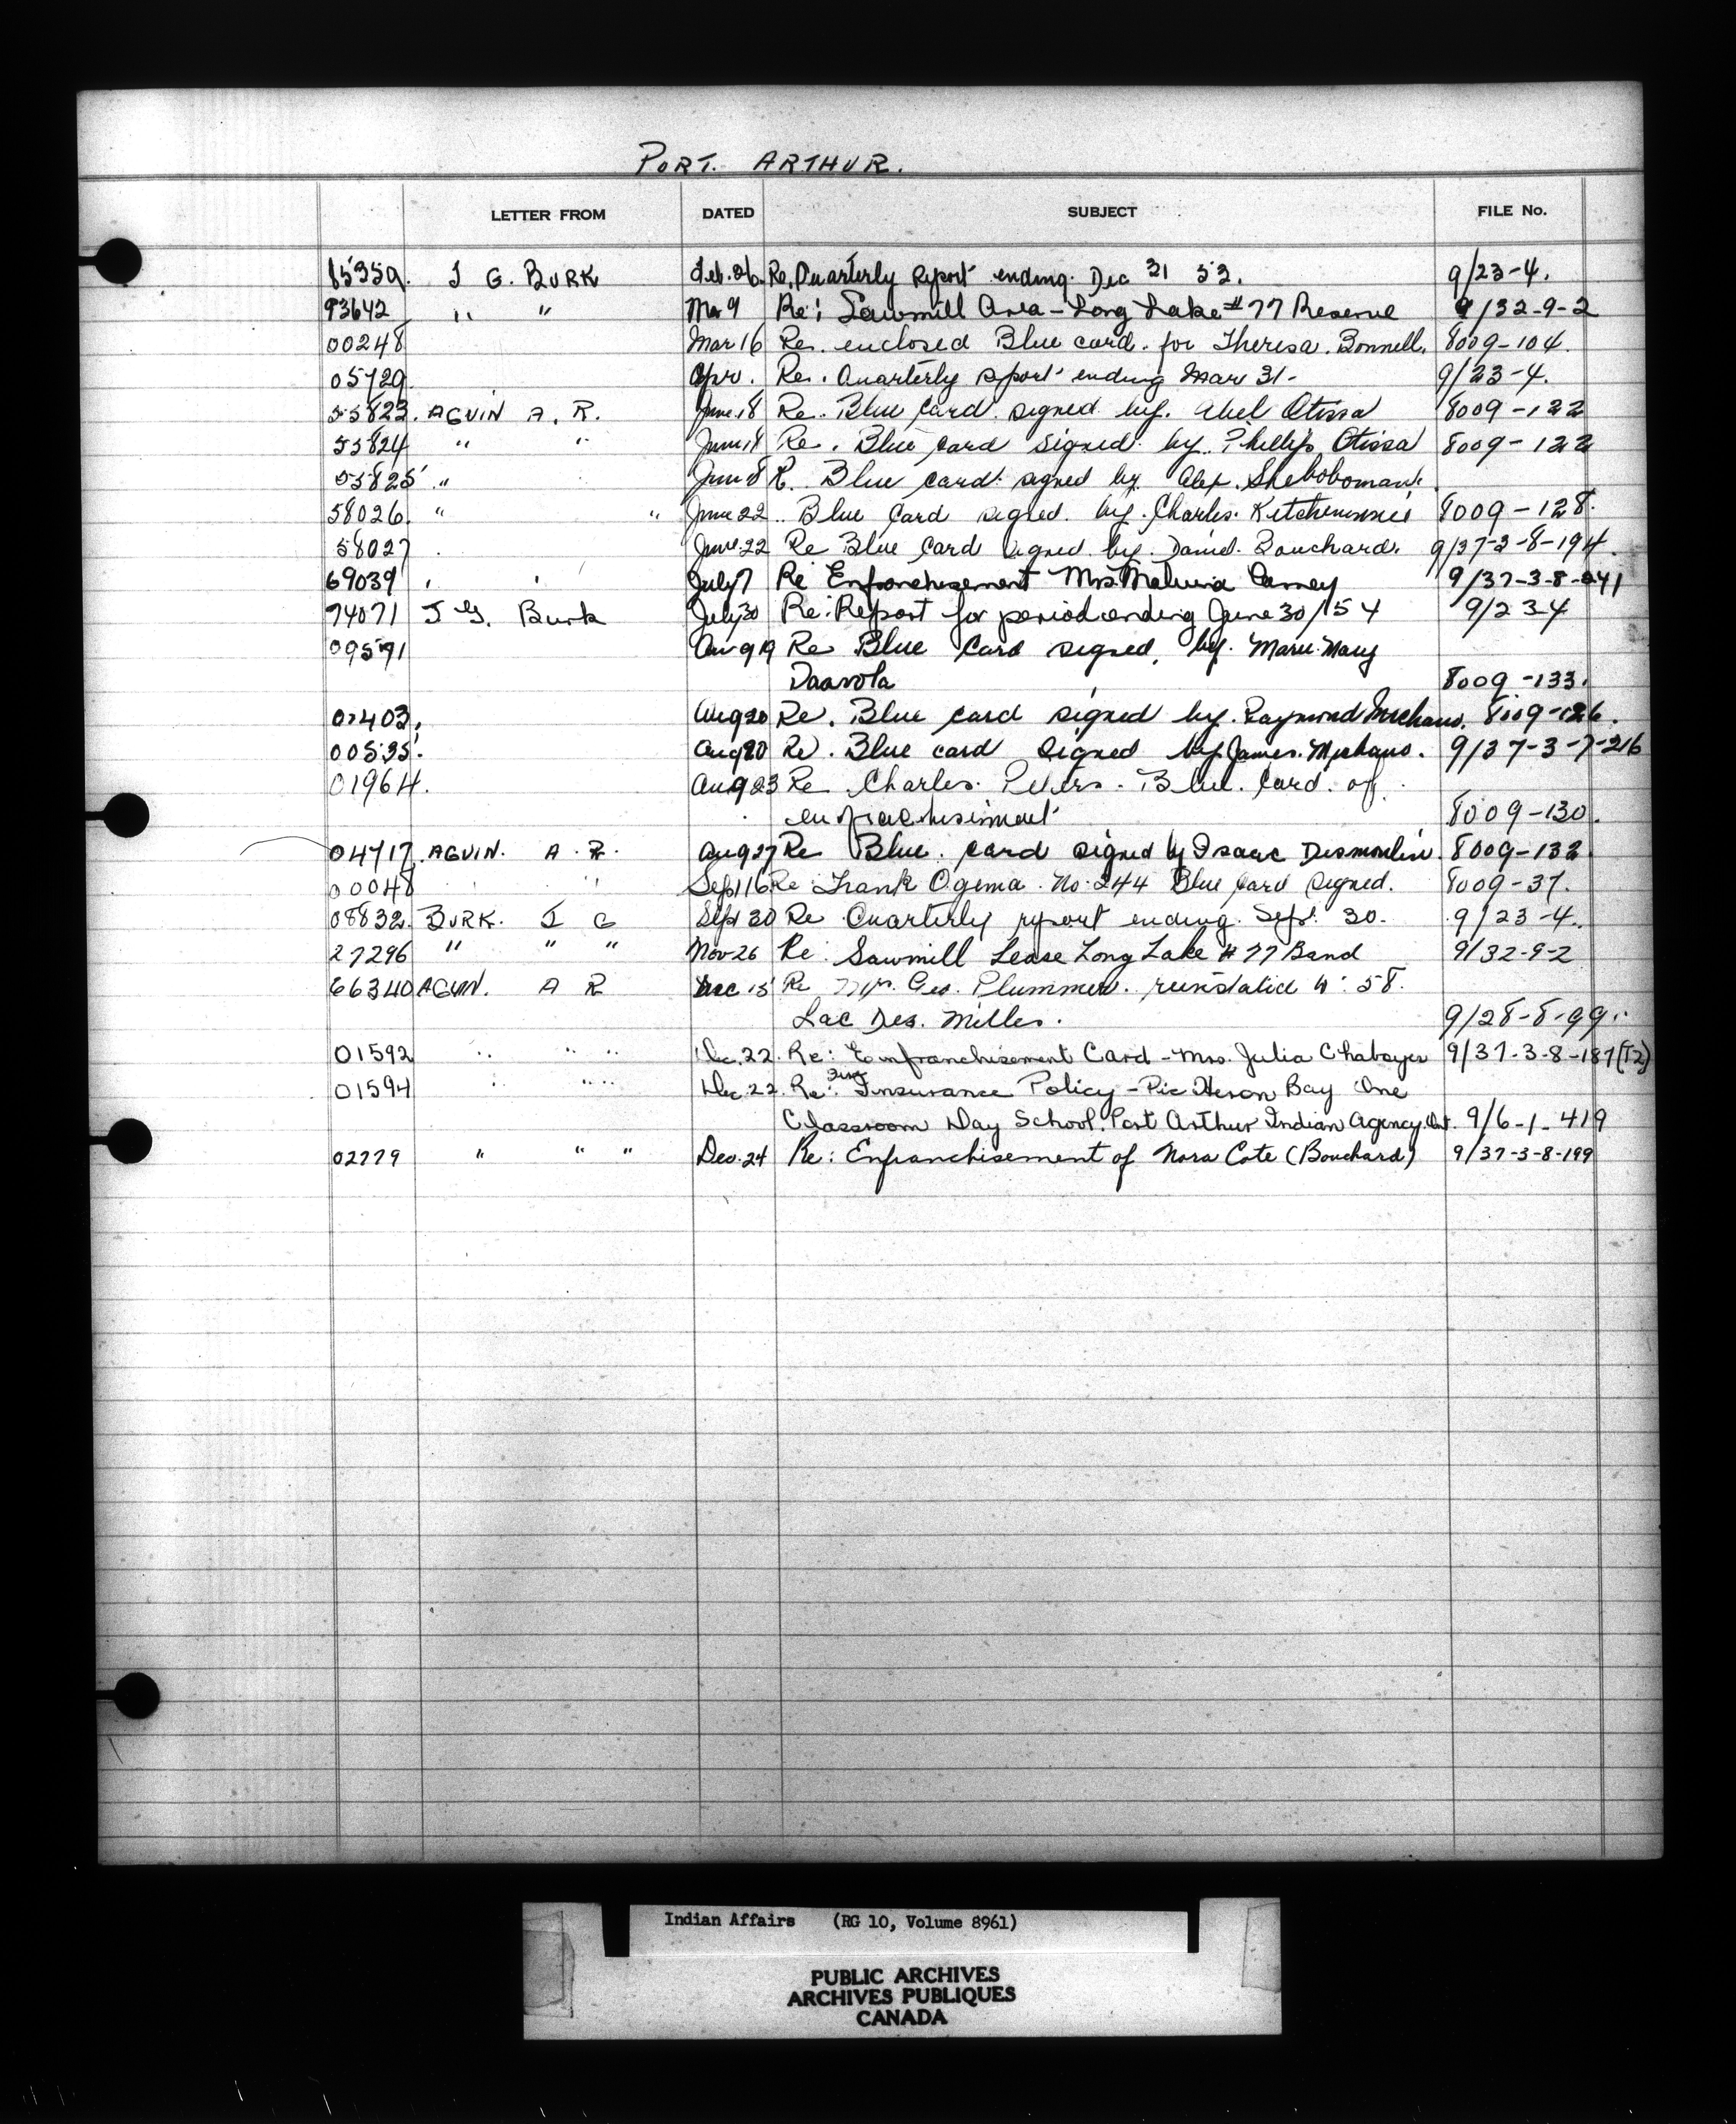 PORT. ARTHUR.
LETTER FROM DATED SUBJECT FILE No.
85359. J G. BURK Feb. 26. Re. Quarterly Report ending. Dec 31 53. 9/23-4.
93642 " " Mar 9 Re: Sawmill Area - Long Lake #77 Reserve 9/32-9-2
00248 Mar 16 Re. enclosed Blue card. for Theresa. Bonnell. 8009-104.
05729. Apr. Re. Quarterly report ending Mar 31- 9/23-4.
55823. AGUIN A. R. June.18 Re. Blue Card. signed by. Abel Otissa 8009-122
55824 " " June 18 Re. Blue Card signed. by. Phillip Otissa 8009-122
55825 " June 18 R. Blue card. signed by Alex.
58026. " " June 22 .. Blue Card signed. by. Charles. 8009-128.
58027 June.22 Re Blue Card signed by. Daniel. Bouchard. 9/37-3-8-194.
69039 July 7 Re Enfranchisement Mrs. 9/37-3-8-241
74071 J G. Burk July 30 Re: Report for period ending June 30/54 9/23-4
09591 Aug 19 Re Blue Card signed, by. Marie Mary
8009-133.
07403. Aug 20 Re. Blue card signed by. Raymond Michano. 8009-126.
00535. Aug 20 Re. Blue card signed by James. Michano. 9/37-3-7-216
01964. Aug 23 Re Charles. Peters. Blue. Card. of.
enfranchisement 8009-130.
04717. AGUIN. A. R. Aug 27 Re Blue. card signed by Isaac Desmoulin 8009-132
00048 " Sept 16 Re Frank Ogema. No. 244 Blue Card signed. 8009-37.
08832. BURK. J G Sept 30 Re Quarterly report ending. Sept. 30. 9/23-4.
27296 " " " Nov 26 Re: Sawmill Lease Long Lake #77 Band 9/32-9-2
66340 AGUIN. A R Dec 15 Re Mrs. Geo. Plummer. 58.
Lac Des. Milles. 9/28-8-99.
01592 " " " Dec. 22. Re: Enfranchisement Card - Mrs. Julia Chaboyer 9/37-3-8-187(T2)
01594 " " " Dec. 22. Re: Fire Insurance Policy - Pic Heron Bay One
Classroom Day School. Port Arthur Indian Agency. Ont. 9/6-1-419
02779 " " " Dec. 24 Re: Enfranchisement of Nora Cote (Bouchard) 9/37-3-8-199
Indian Affairs (RG 10, Volume 8961)
PUBLIC ARCHIVES
ARCHIVES PUBLIQUES
CANADA